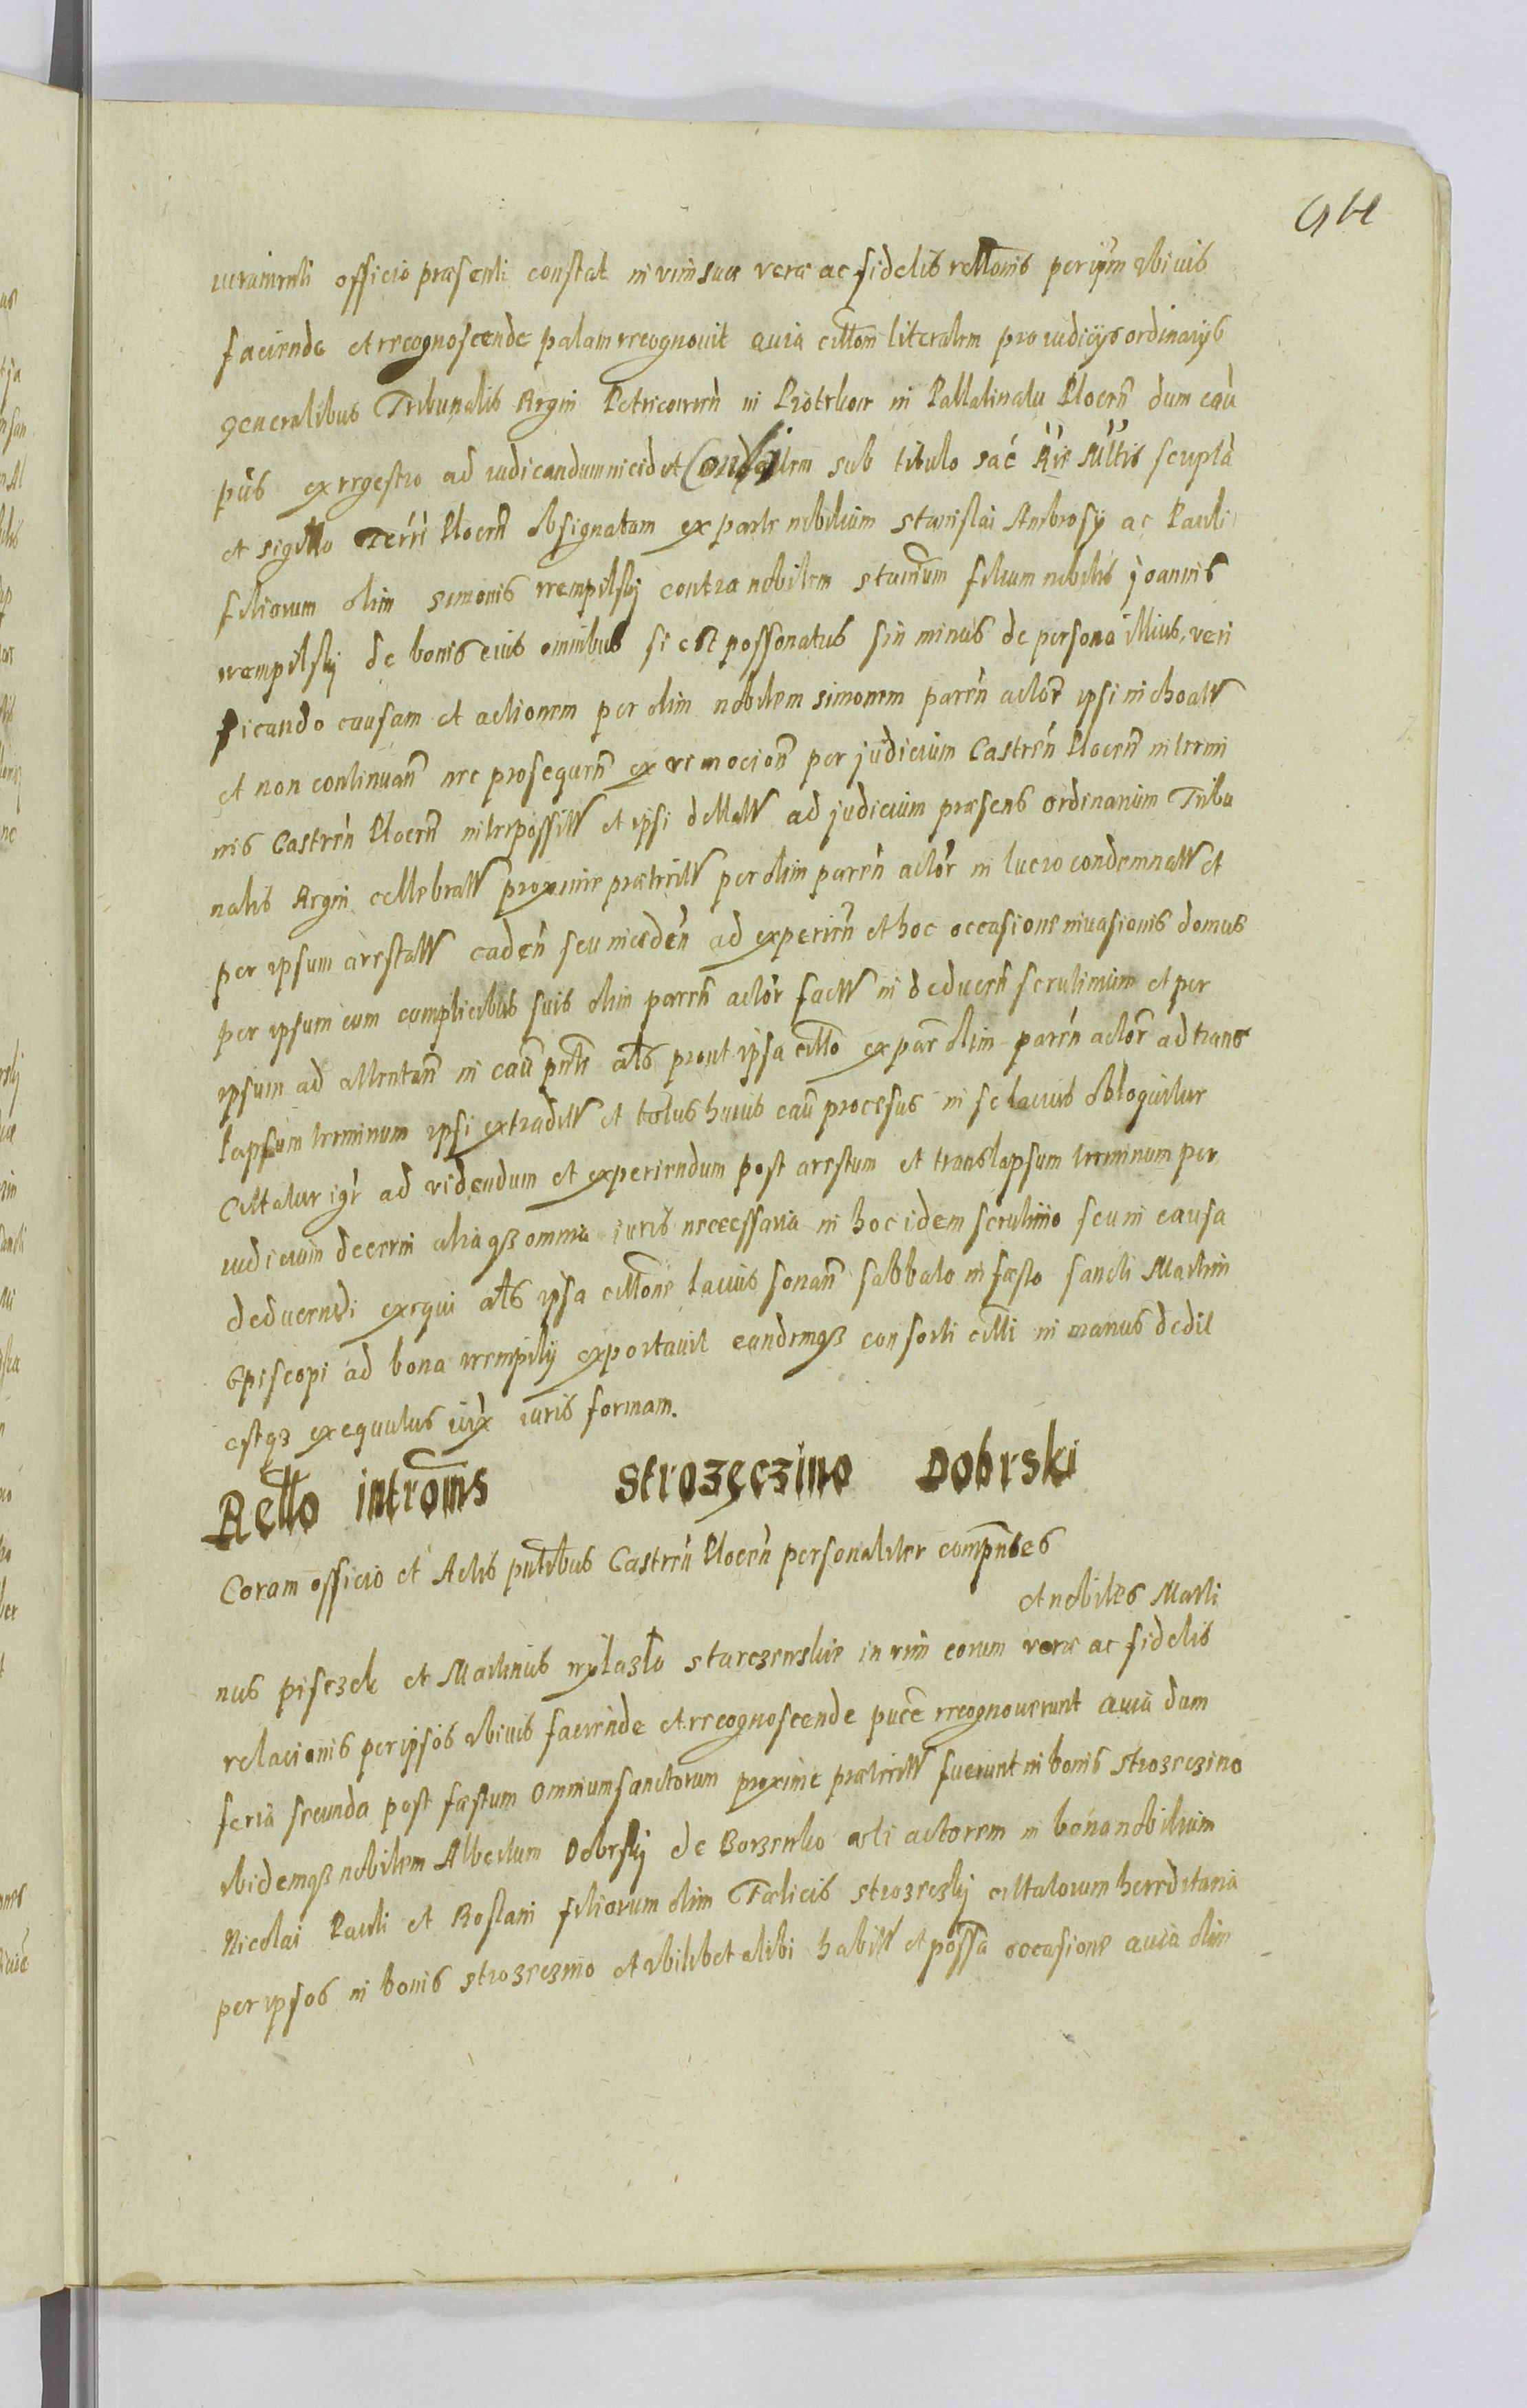 iuramenti officio præsenti constat in vim suæ veræ ac fidelis rellonis per ipm̃ ubiuis
faciende et recognoscende palam recognouit quia cittõm literalem pro iudicÿs ordinarÿs
generalibus Tribunalis Regni Petricouieñ in Piotrkow in Pallatinatu Ploceñ dum caũ
pñs ex regestro ad iudicandum inciderit sub titulo sac̃ Rie Mttis scriptã
et sigillo Terri Ploceñ obsignatam ex parte nobilium stanislai Ambrosÿ ac Pauli
filiorum olim simonis wempilskj contra nobilem staĩnum filium nobilis joannis
wempilskj de bonis eius omnibus si est possonatus sin minus de persona illius, veri
ficando causam et actionem per olim nobilem simonem pareñ actor̃ ipsi inchoatt
et non continuañ nec prosequeñ ex remocioñ per judicium Castreñ Ploceñ in termi
nis Castreñ Ploceñ interpossitt et ipsi dellatt ad judicium præsens ordinarium Tribu
nalis Regni cellebratt proxime præteritt per olim pareñ actor̃ in lucro condemnatt et
per ipsum arestatt cadeñ seu incideñ ad experieñ et hoc occasione inuasionis domus
per ipsum cum complicibus suis olim pareñ actor̃ factt in deduceñ scrutinium et per
ipsum ad attentañ in caũ pñti als prout ipsa citto ex par̃ olim pareñ actor̃ ad trans
lapsum terminum ipsi extraditt et totus huius caũ procesus in se lacius obloquitur
Cittatur igr̃ ad videndum et experiendum post arestum et translapsum terminum per
iudicium decerni aliaqȝ omnia iuris neccessaria in hoc idem scrutinio seu in causa
deducendi exequi alts ipsa cittone lacius sonañ sabbato in fæsto sancti Martini
Episcopi ad bona wempily exportauit eandemqȝ consorti citti in manus dedit
estqȝ exequutus iux̃ iuris formam.
Rello intromis Strozęczino Dobrski
Coram officio et Actis pñtibus Castreñ Ploceñ personaliter compñtes
et nobiles Marti
nus pisczek et Martinus wylazlo starczewskie in vim eorum veræ ac fidelis
relacionis per ipsos ubiuis faciende et recognoscende puce recognouerunt quia dum
feria secunda post fæstum Omnium sanctorum proxime præteritt fuerunt in bonis strozeczino
ibidemqȝ nobilem Albertum Dobrskj de Borzewko acti actorem in bona nobilium
Nicolai Pauli et Rostani filiorum olim Fælicis strozeczkj cittatorum hereditaria
per ipsos in bonis strozeczino et ubilibet alibi habitt et possa occasione quia olim